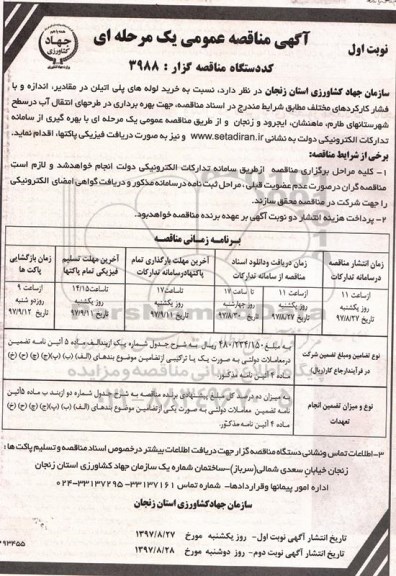 آگهی مناقصه عمومی یک مرحله ای
نوبت اول
جهاد کشاورزی
کددستگاه مناقصه گزار : ۳۹۸۸
سازمان جهاد کشاورزی استان زنجان در نظر دارد، نسبت به خرید لوله های پلی اتیلن در مقادیر، اندازه و با
فشار کارکردهای مختلف مطابق شرایط مندرج در اسناد مناقصه، جهت بهره برداری در طرحهای انتقال آب درسطح
شهرستانهای طارم، ماهنشان، ایجرود و زنجان و از طریق مناقصه عمومی یک مرحله ای با بهره گیری از سامانه
تدارکات الکترونیکی دولت به نشانی www.setadiran.ir و نیز به صورت دریافت فیزیکی پاکتها، اقدام نماید.
برخی از شرایط مناقصه:
۱- کلیه مراحل برگزاری مناقصه ازطریق سامانه تدارکات الکترونیکی دولت انجام خواهدشد و لازم است
مناقصه گران درصورت عدم عضویت قبلی، مراحل ثبت نامه درسامانه مذکور و دریافت گواهی امضای الکترونیکی
را جهت شرکت در مناقصه محقق سازند.
۲- پرداخت هزینه انتشار دو نوبت آگهی بر عهده برنده مناقصه خواهدبود.
برنامه زمانی مناقصه
زمان انتشار مناقصه درسامانه تدارکات
زمان دریافت ودانلود اسناد مناقصه از سامانه تدارکات
آخرین مهلت بارگذاری تمام پاکتهادرسامانه تدارکات
آخرین مهلت تسلیم فیزیکی تمام پاکتها
زمان بازگشایی پاکت ها
ازساعت ۱۱ روز یکشنبه ۹۷/۸/۲۷
ازساعت ۱۱ روز یکشنبه ۹۷/۸/۲۷
تا ساعت ۱۷ روز چهارشنبه ۹۷/۸/۳۰
تاساعت ۱۷ روز یکشنبه ۹۷/۹/۱۱
تاساعت ۱۴/۱۵ روز یکشنبه ۹۷/۹/۱۱
ازساعت ۹ روز دو شنبه ۹۷/۹/۱۲
نوع تضامین ومبلغ تضمین شرکت درفرآیندارجاع کار(ریال)
به مبلغ ۴۸۰/۲۲۴/۱۵۰ ریال به شرح جدول شماره یک ازبندالف ماده ۵ آئین نامه تضمین درمعاملات دولتی به صورت یک یا ترکیبی ازتضامین موضوع بندهای (الف) (ب) (پ)(ج) (چ) (ح) (خ) ماده ۴ آئین نامه مذکور.
نوع و میزان تضمین انجام تعهدات
به میزان ده درصد کل مبلغ پیشنهادی برنده مناقصه به شرح جدول شماره دو ازبند ب ماده ۵آئین نامه تضمین معاملات دولتی به صورت یکی ازتضامین موضوع بندهای (الف) (ب) (پ)(ج) (چ) (ح) (خ) ماده ۴ آئین نامه مذکور.
۳-اطلاعات تماس ونشانی دستگاه مناقصه گزار جهت دریافت اطلاعات بیشتر درخصوص اسناد مناقصه و تسلیم پاکت ها :
زنجان خیابان سعدی شمالی(سرباز)-ساختمان شماره یک سازمان جهاد کشاورزی استان زنجان
اداره امور پیمانها وقراردادها- شماره تماس ۳۳۱۳۷۱۶۱-۳۳۱۳۷۲۹۵-۰۲۴
سازمان جهادکشاورزی استان زنجان
تاریخ انتشار آگهی نوبت اول- روز یکشنبه مورخ ۱۳۹۷/۸/۲۷
تاریخ انتشار آگهی نوبت دوم- روز دوشنبه مورخ ۱۳۹۷/۸/۲۸